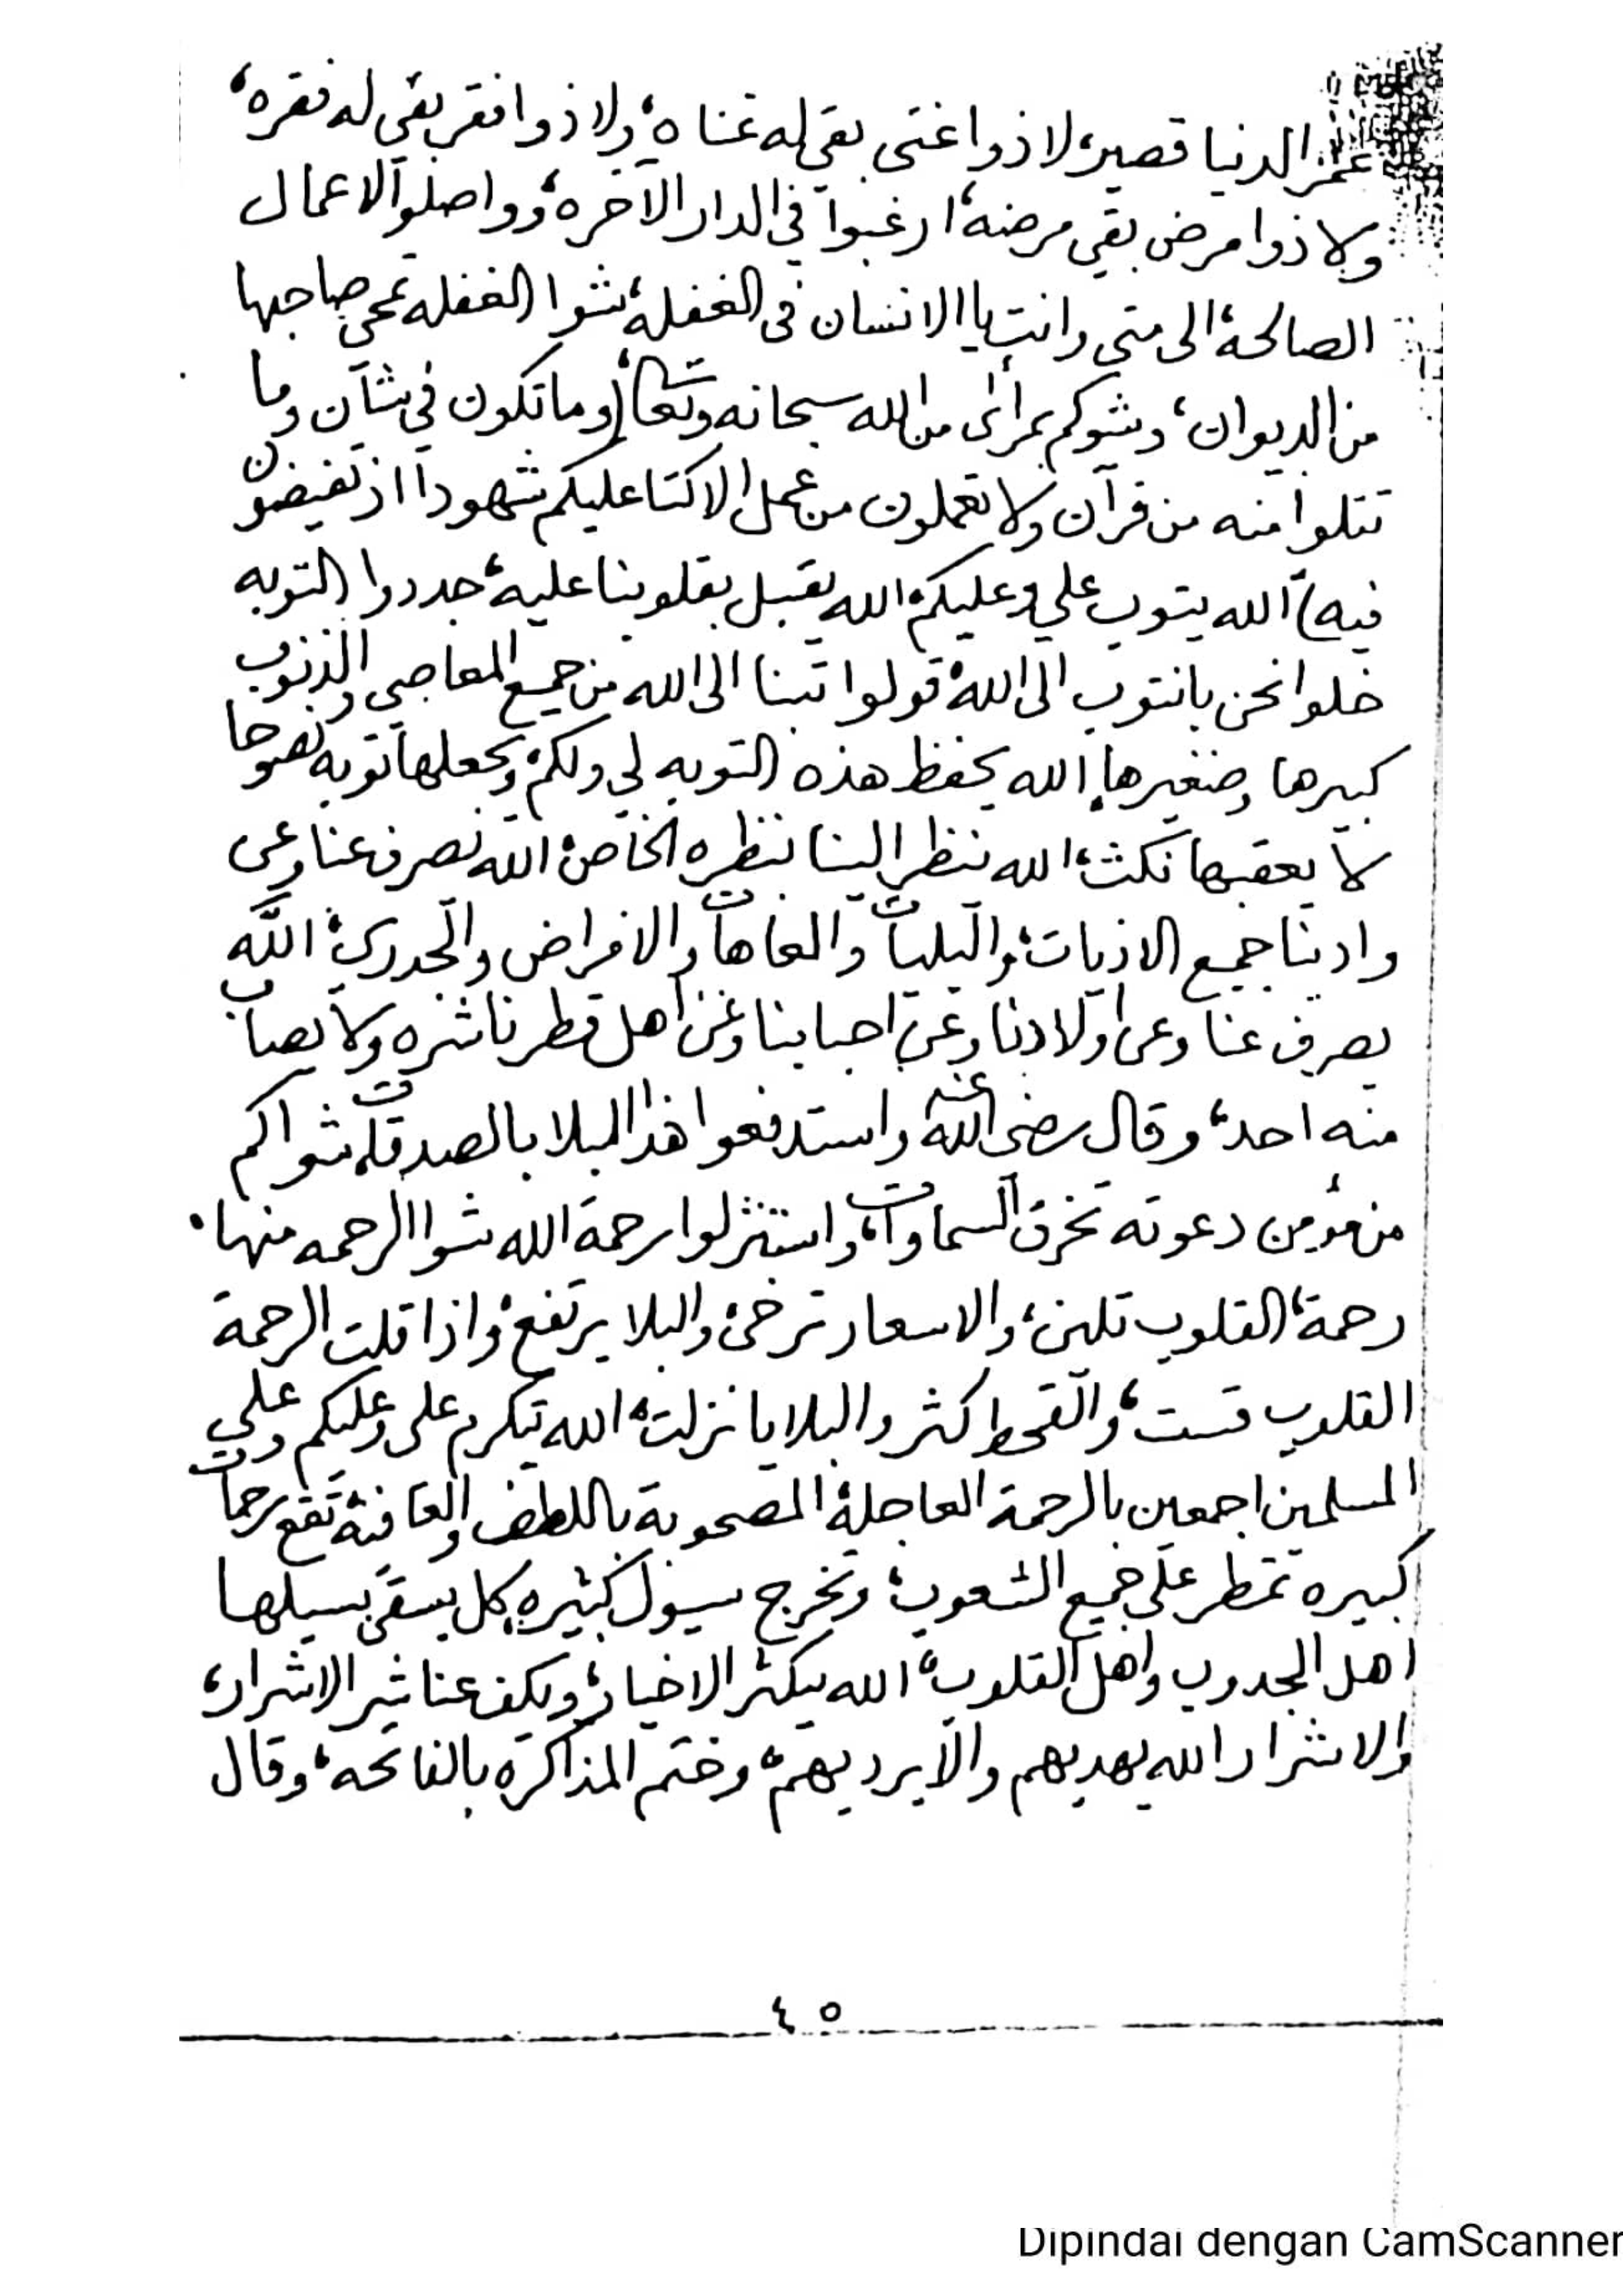 عمر الدنيا قصير، لا ذوا غنى بقي له غناه، ولا ذوا فقر بقي له فقره،
ولا ذوا مرض بقي مرضه، ارغبوا في الدار الآخره، وواصلوا الاعمال
الصالحة، الى متى وانت يا الانسان في الغفلة، شوا الغفله تمحي صاحبها
من الديوان، وشوكم بمرأى من الله سبحانه وتعالى، (وما تكون في شأن وما
تتلوا منه من قرآن ولا تعملون من عمل الا كنا عليكم شهودا اذ تفيضون
فيه) الله يتوب علي وعليكم، الله يقبل بقلوبنا عليه، جددوا التوبه
خلوا نحن بانتوب الى الله، قولوا تبنا الى الله من جميع المعاصي والذنوب
كبيرها وصغيرها، الله يحفظ هذه التوبه لي ولكم، ويجعلها توبه نصوحا
لا يعقبها نكث، الله ينظر الينا بنظره الخاص، الله يصرف عنا وعن
وادينا جميع الاذيات، والبليات والعاهات والامراض والجدري، الله
يصرف عنا وعن اولادنا وعن احبابنا وعن اهل قطرنا شره ولا يصاب
منه احد، وقال رضي الله عنه واستدفعوا هذا البلا بالصدقات، شوا كم
من مؤمن دعوته تخرق السماوات، واستنزلوا رحمة الله شوا الرحمه منها.
رحمة، القلوب تلين، والاسعار ترخى، والبلا يرتفع، واذا قلت الرحمة
القلوب قست، والقحط كثر والبلايا نزلت، الله يتكرم علي وعليكم وعلى
المسلمين اجمعين بالرحمة العاجلة، المصحوبة باللطف والعافية، تقع رحمات
كبيره تمطر على جميع الشعوب، وتخرج سيول كثيره، كل يسقى بسيلها
اهل الجدوب واهل القلوب، الله يكثر الاخيار، ويكف عنا شر الاشرار،
والاشرار الله يهديهم والا يرديهم، وختم المذاكره بالفاتحه، وقال
٤٥
Dipindai dengan CamScanner